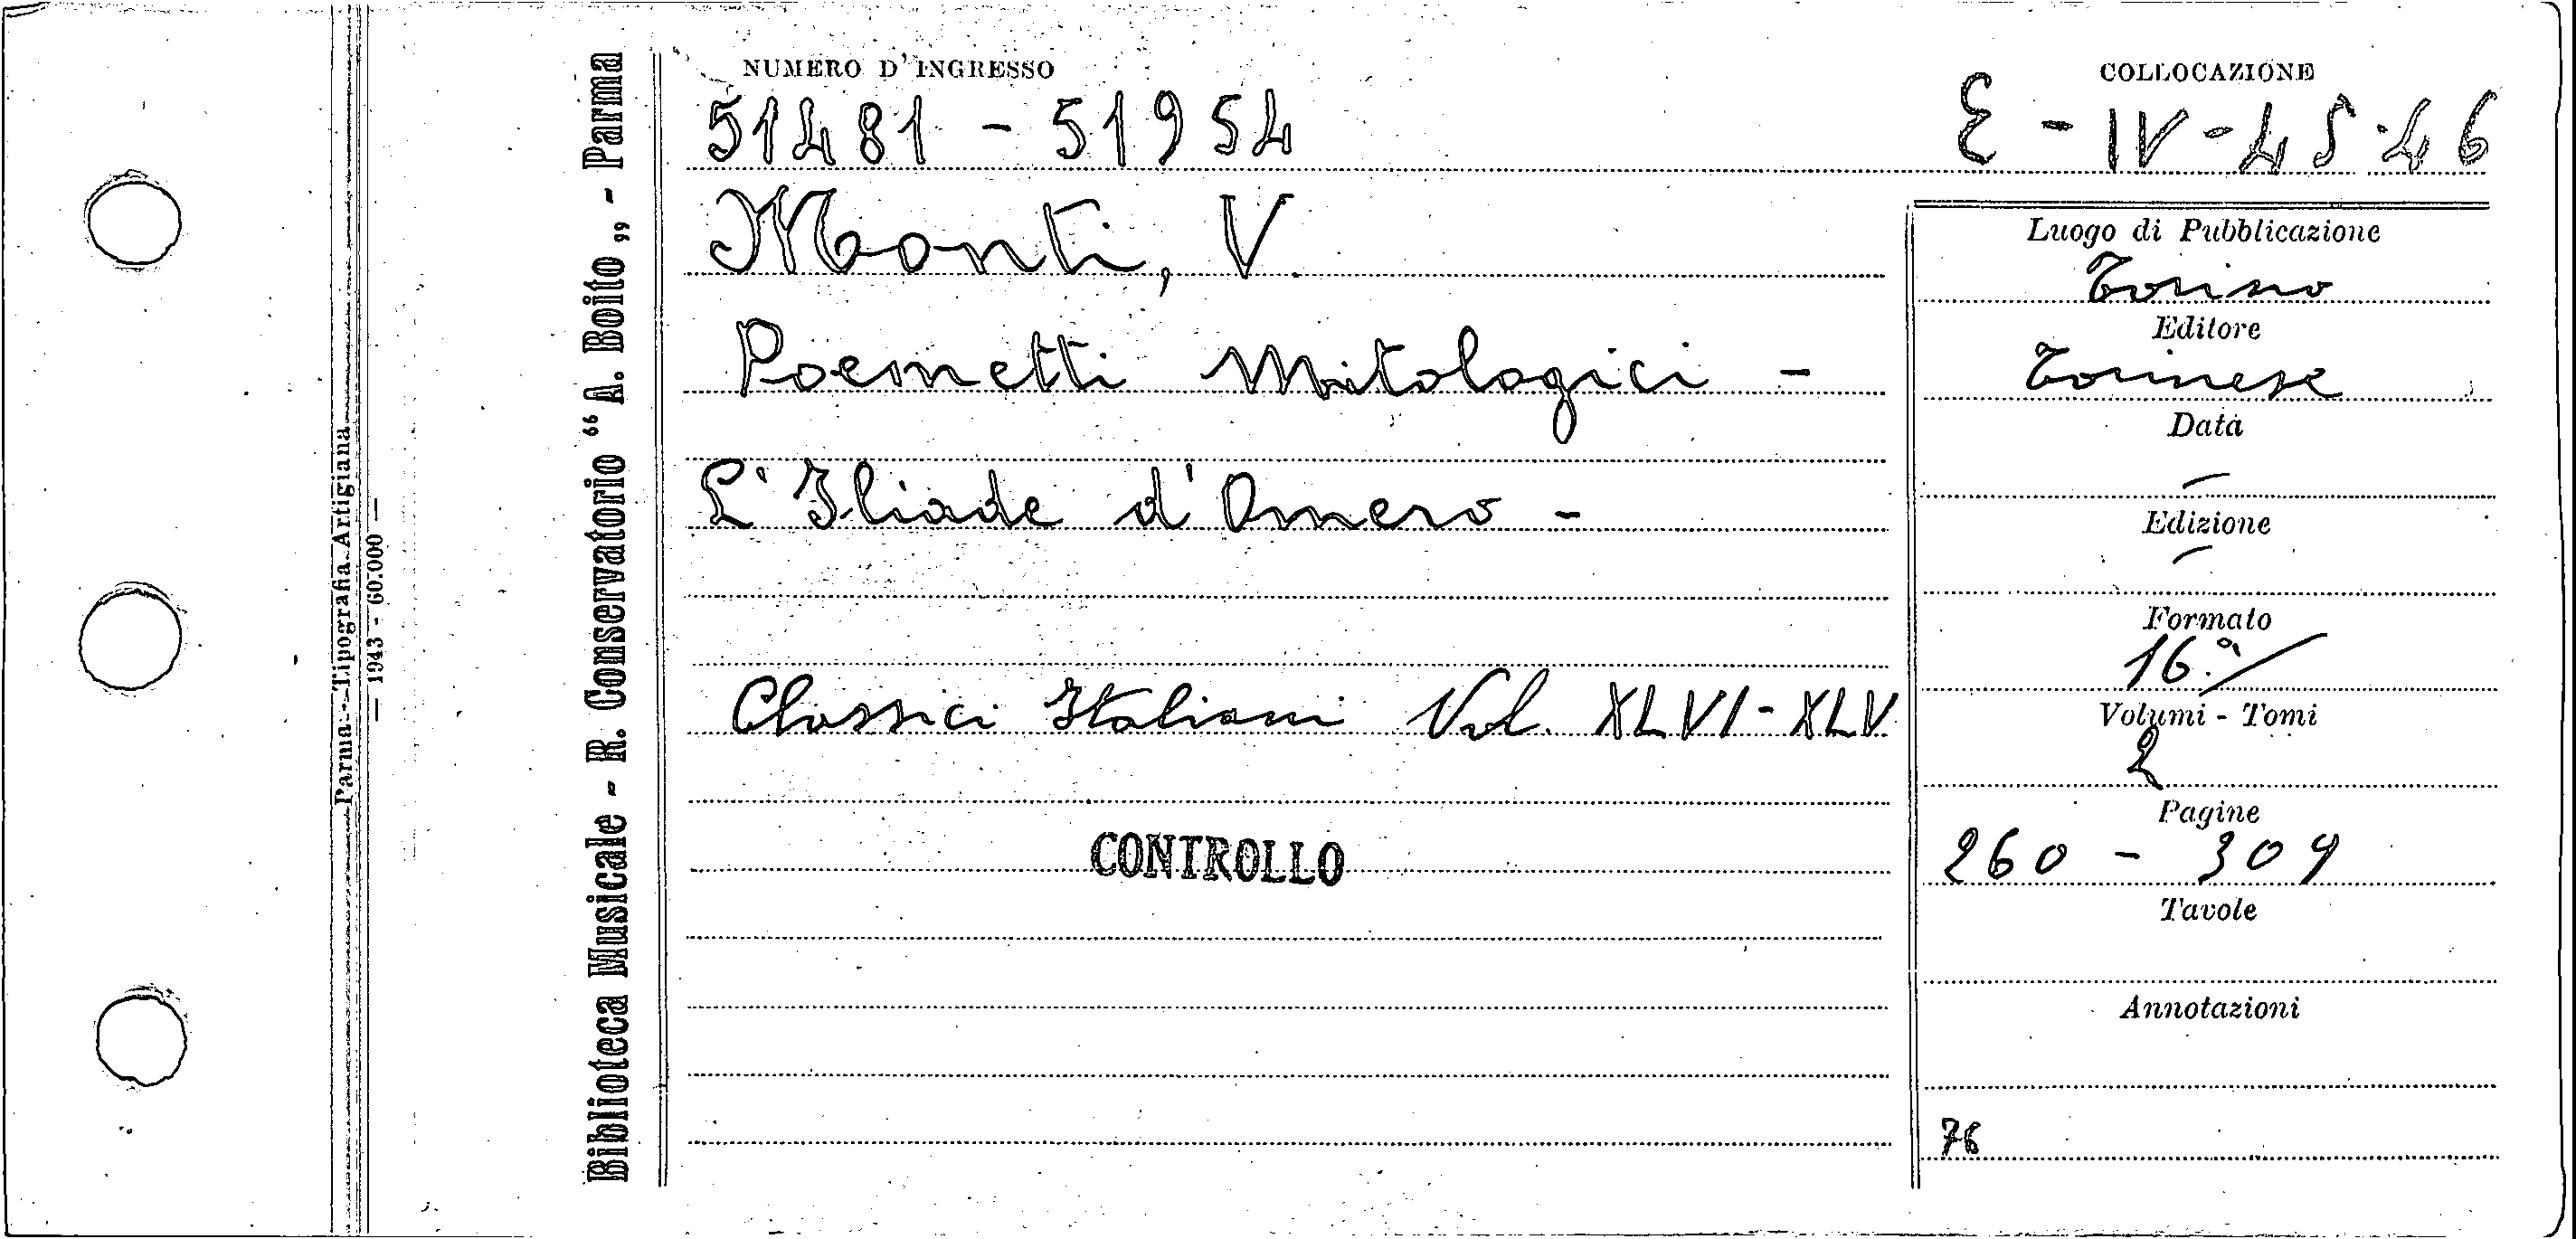 Parma - Tipografia Artigiana
— 1943 - 60.000 —
Biblioteca Musicale - R. Conservatorio “ A. Boito „ - Parma
NUMERO D'INGRESSO
51481 - 51954
Monti, V.
Poemetti Mitologici -
L'Iliade d'Omero -
Classici Italiani Vol. XLVI - XLV
CONTROLLO
COLLOCAZIONE
E - IV - 45-46
Luogo di Pubblicazione
Torino
Editore
Torinese
Data
—
Edizione
—
Formato
16.°
Volumi - Tomi
2
Pagine
260 - 309
Tavole
Annotazioni
76